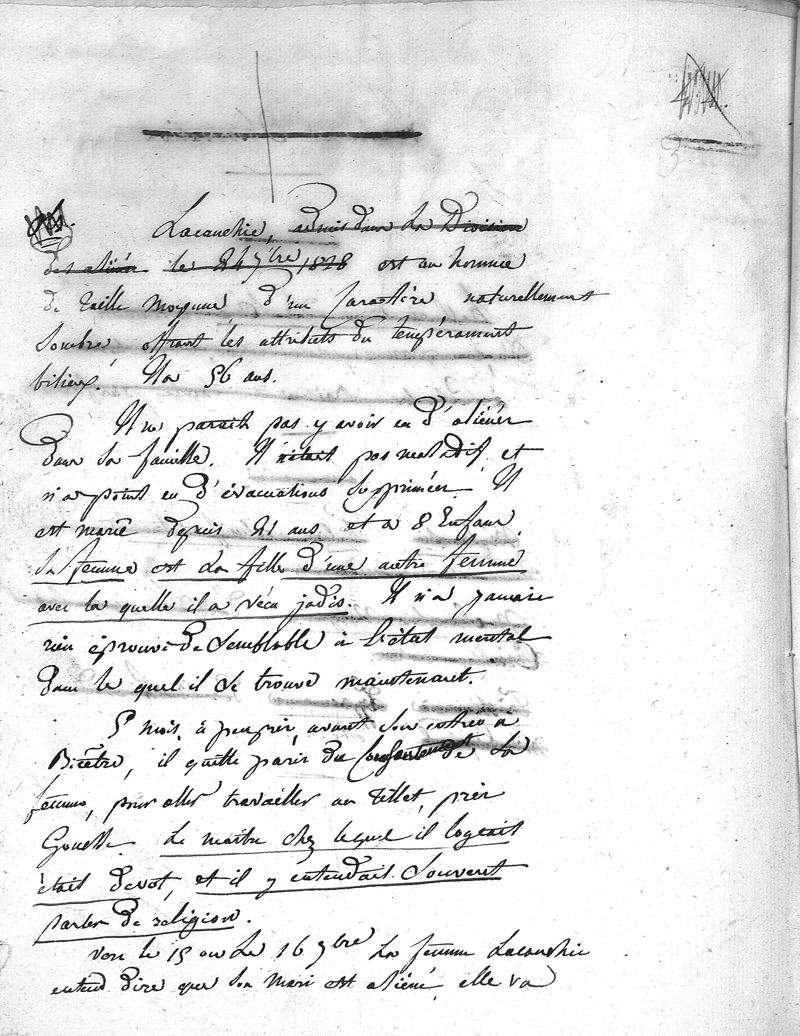 3
Lacauchie, admis dans la Division
des aliénés le 24 9bre 1828 est un homme
de taille moyenne d'un caractère naturellement
sombre offrant les attributs du tempérament
bilieux. Il a 56 ans.
Il ne parait pas y avoir eu d'aliénés
dans sa famille. Il n'était pas maladif, et
n'a point eu d'évacuations supprimées. Il
est marié depuis 21 ans et a 8 Enfans.
Sa femme est la fille d'une autre femme
avec la quelle il a vécu jadis. Il n'a jamais
rien éprouvé de semblable à l'état mental
dans le quel il se trouve maintenant.
5 mois, à peu près, avant son entrée à
Bicêtre, il quitte paris du Consentement de sa
femme, pour aller travailler au Tillet, près
Gonesse. Le maître chez lequel il logeait
était devot, et il y entendait souvent
parler de religion.
Vers le 15 ou le 16 9bre la femme Lacauchie
entend dire que son mari est aliéné, elle va